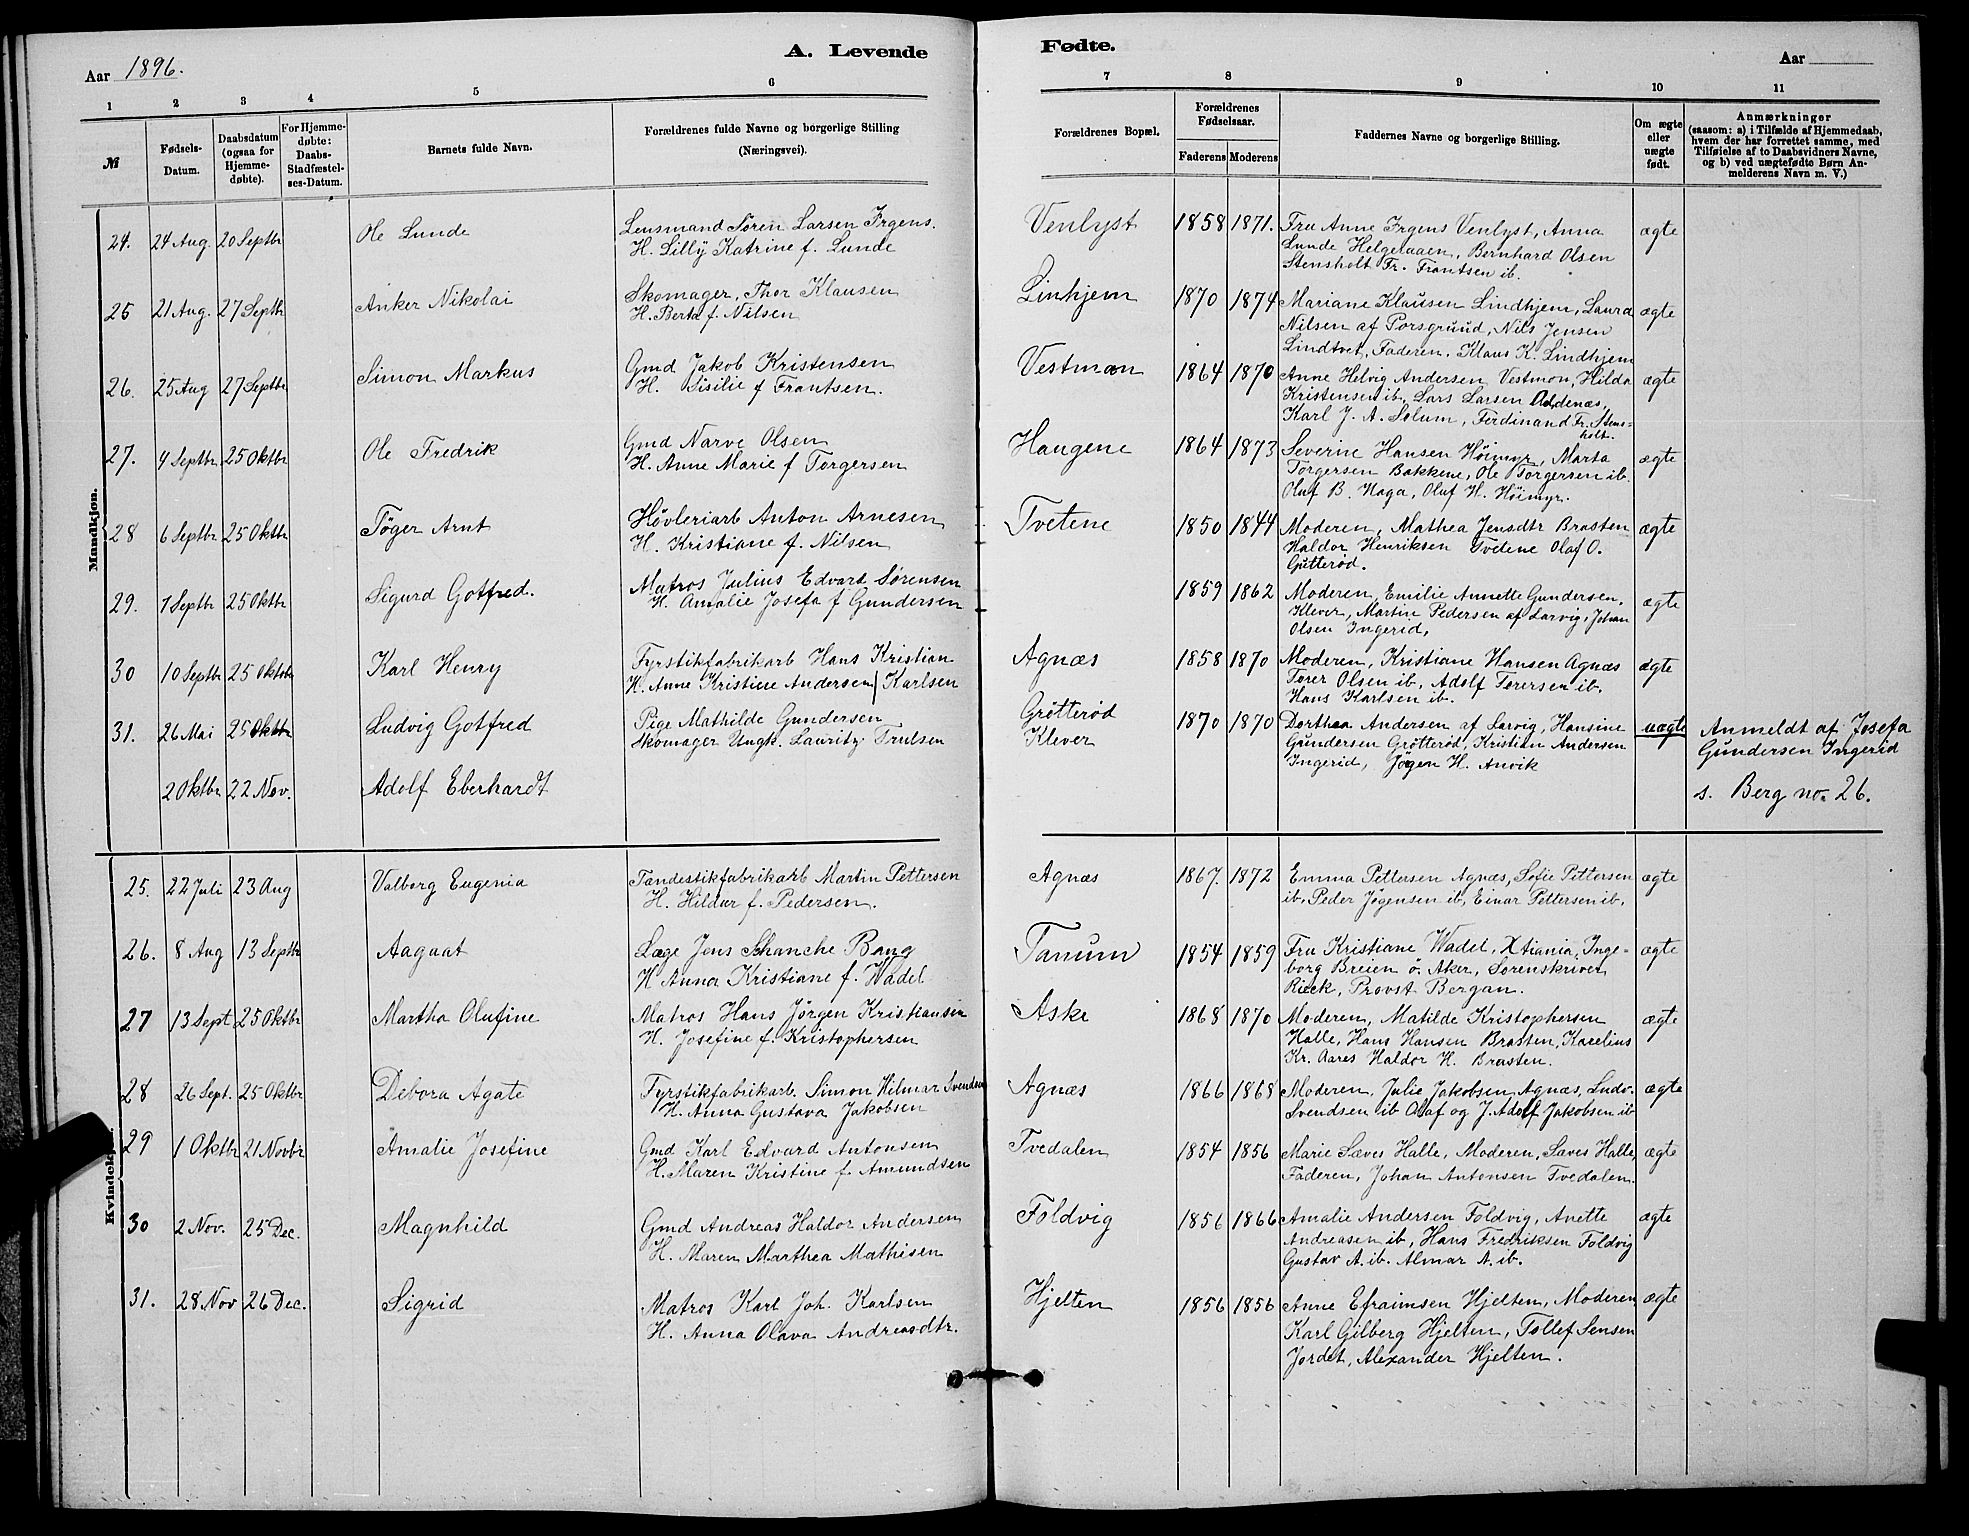 A. Levende
Aar 1896.
1 2 3 4 5 6
№
Fødsels-
Datum.
Daabsdatum
(ogsaa for
Hjemme-
døbte).
For Hjemme-
døbte:
Daabs-
Stadfæstel-
ses-Datum.
Barnets fulde Navn.
Forældrenes fulde Navne og borgerlige Stilling
(Næringsvei).
Mandkjøn.
24. 24 Aug. 20 Septbr Ole Lunde Lensmand Sören Larsen Irgens.
H. Lilly Katrine f. Lunde
25 21 Aug. 27 Septbr Anker Nikolai Skomager, Thor Klausen
H. Berta f. Nilsen
26. 25 Aug 27 Septbr Simon Markus Gmd Jakob Kristensen
H. Sisilie f Frantsen.
27. 4 Septbr. 25 Oktbr Ole Fredrik Gmd Narve Olsen
H. Anne Marie f Torgersen
28 6 Septbr 25 Oktbr Töger Arnt Høvleriarb Anton Arnesen
H. Kristiane f. Nilsen
29. 7 Septbr 25 Oktbr Sigurd Gotfred. Matros Julius Edvard Sørensen
H. Amalie Josefa f Gundersen
30 10 Septbr 25 Oktbr Karl Henry Fyrstikfabrikarb Hans Kristian
H. Anne Kristine Andersen / Karlsen
31. 26 Mai 25 Oktbr Ludvig Gotfred Pige Mathilde Gundersen
Skomager Ungk. Lauritz Trulsen
2 Oktbr 22 Nov. Adolf Eberhardt
Kvindekjøn.
25. 22 Juli 23 Aug Valborg Eugenia Tandestikfabrikarb Martin Pettersen
H. Hildur f. Pedersen.
26. 8 Aug 13 Septbr Aagaat Læge Jens Schanche Bang
H Anna Kristiane f. Wadel
27 13 Sept 25 Oktbr Martha Olufine Matros Hans Jørgen Kristiansen
H. Josefine f. Kristophersen
28 26 Sept. 25 Oktbr Debora Agate Fyrstikfabrikarb. Simon Hilmar Svendsen
H. Anna Gustava Jakobsen
29 1 Oktbr 21 Novbr Amalie Josefine Gmd Karl Edvard Antonsen
H. Maren Kristine f. Amundsen
30 2 Nov. 25 Dec. Magnhild Gmd Andreas Haldor Andersen
H. Maren Marthea Mathisen
31. 28 Nov 26 Dec. Sigrid Matros Karl Joh. Karlsen
H. Anna Olava Andreasdtr.
Fødte.
Aar
7 8 9 10 11
Forældrenes Bopæl.
Forældrenes
Fødselsaar.
Faderens Moderens
Faddernes Navne og borgerlige Stilling.
Om ægte
eller
uægte
født.
Anmærkninger
(saasom: a) i Tilfælde af Hjemmedaab,
hvem der har forrettet samme, med
Tilføielse af to Daabsvidners Navne,
og b) ved uægtefødte Børn An-
melderens Navn m. V.)
Venlyst 1858 1871. Fru Anne Irgens Venlyst, Anna ægte
Lunde Helgeraaen, Bernhard Olsen
Stensholt Fr. Frantsen ib.
Linhjem 1870 1874 Mariane Klausen Lindhjem, Laura ægte
Nilsen af Porsgrund, Nils Jensen
Lindtvet, Faderen, Klaus K. Lindhjem
Vestmon 1864 1870 Anne Helvig Andersen Vestmon, Hilda ægte
Kristensen ib, Lars Larsen Odderæs,
Karl J. A. Solum, Ferdinand Fr. Stens-
holt.
Haugene 1864 1873 Severine Hansen Höimyr, Marta ægte
Torgersen Bakkene, Ole Torgersen ib.
Oluf B. Haga, Oluf H. Höimyr.
Tvetene 1850 1844 Moderen, Mathea Jensdtr Brasten ægte
Haldor Henriksen Tvetene Olaf O.
Gutterød.
1859 1862 Moderen, Emilie Annette Gundersen, ægte
Klever, Martin Pedersen af Larvig, Johan
Olsen Ingerid,
Agnæs 1858 1870 Moderen, Kristiane Hansen Agnæs ægte
Torer Olsen ib, Adolf Torersen ib.
Hans Karlsen ib.
Grötteröd 1870 1870 Dorthea Andersen af Larvig, Hansine uægte Anmeldt af Josefa
Klever Gundersen Grötteröd, Kristian Andersen Gundersen Ingerid
Ingerid, Jøgen H. Anvik
s. Berg no. 26.
Agnæs 1867. 1872 Emma Pettersen Agnæs, Sofie Pettersen ægte
ib, Peder Jögensen ib, Einar Pettersen ib,
Tanum 1854 1859 Fru Kristiane Wadel, Xtiania, Inge- ægte
borg Breien ö. Aker, Sorenskriver
Rieck, Provst Bergan.
Aske 1868 1870 Moderen, Matilde Kristophersen ægte
Halle, Hans Hansen Brasten, Karelius
Kr. Aares Haldor H. Brasten.
Agnæs 1866 1868 Moderen, Julie Jakobsen, Agnæs, Ludv. ægte
Svendsen ib Olaf og J. Adolf Jakobsen ib
Tvedalen 1854 1856 Marie Sæves Halle, Moderen, Sæves Halle, ægte
Faderen, Johan Antonsen Tvedalen.
Foldvig 1856 1866 Amalie Andersen Foldvig, Anette ægte
Andreasen ib, Hans Fredriksen Foldvig
Gustav A. ib. Almar A. ib.
Hjelten 1856 1856 Anne Efraimsen Hjelten, Moderen ægte
Karl Gilberg Hjelten, Tollef Sensen
Jordet, Alexander Hjelten.